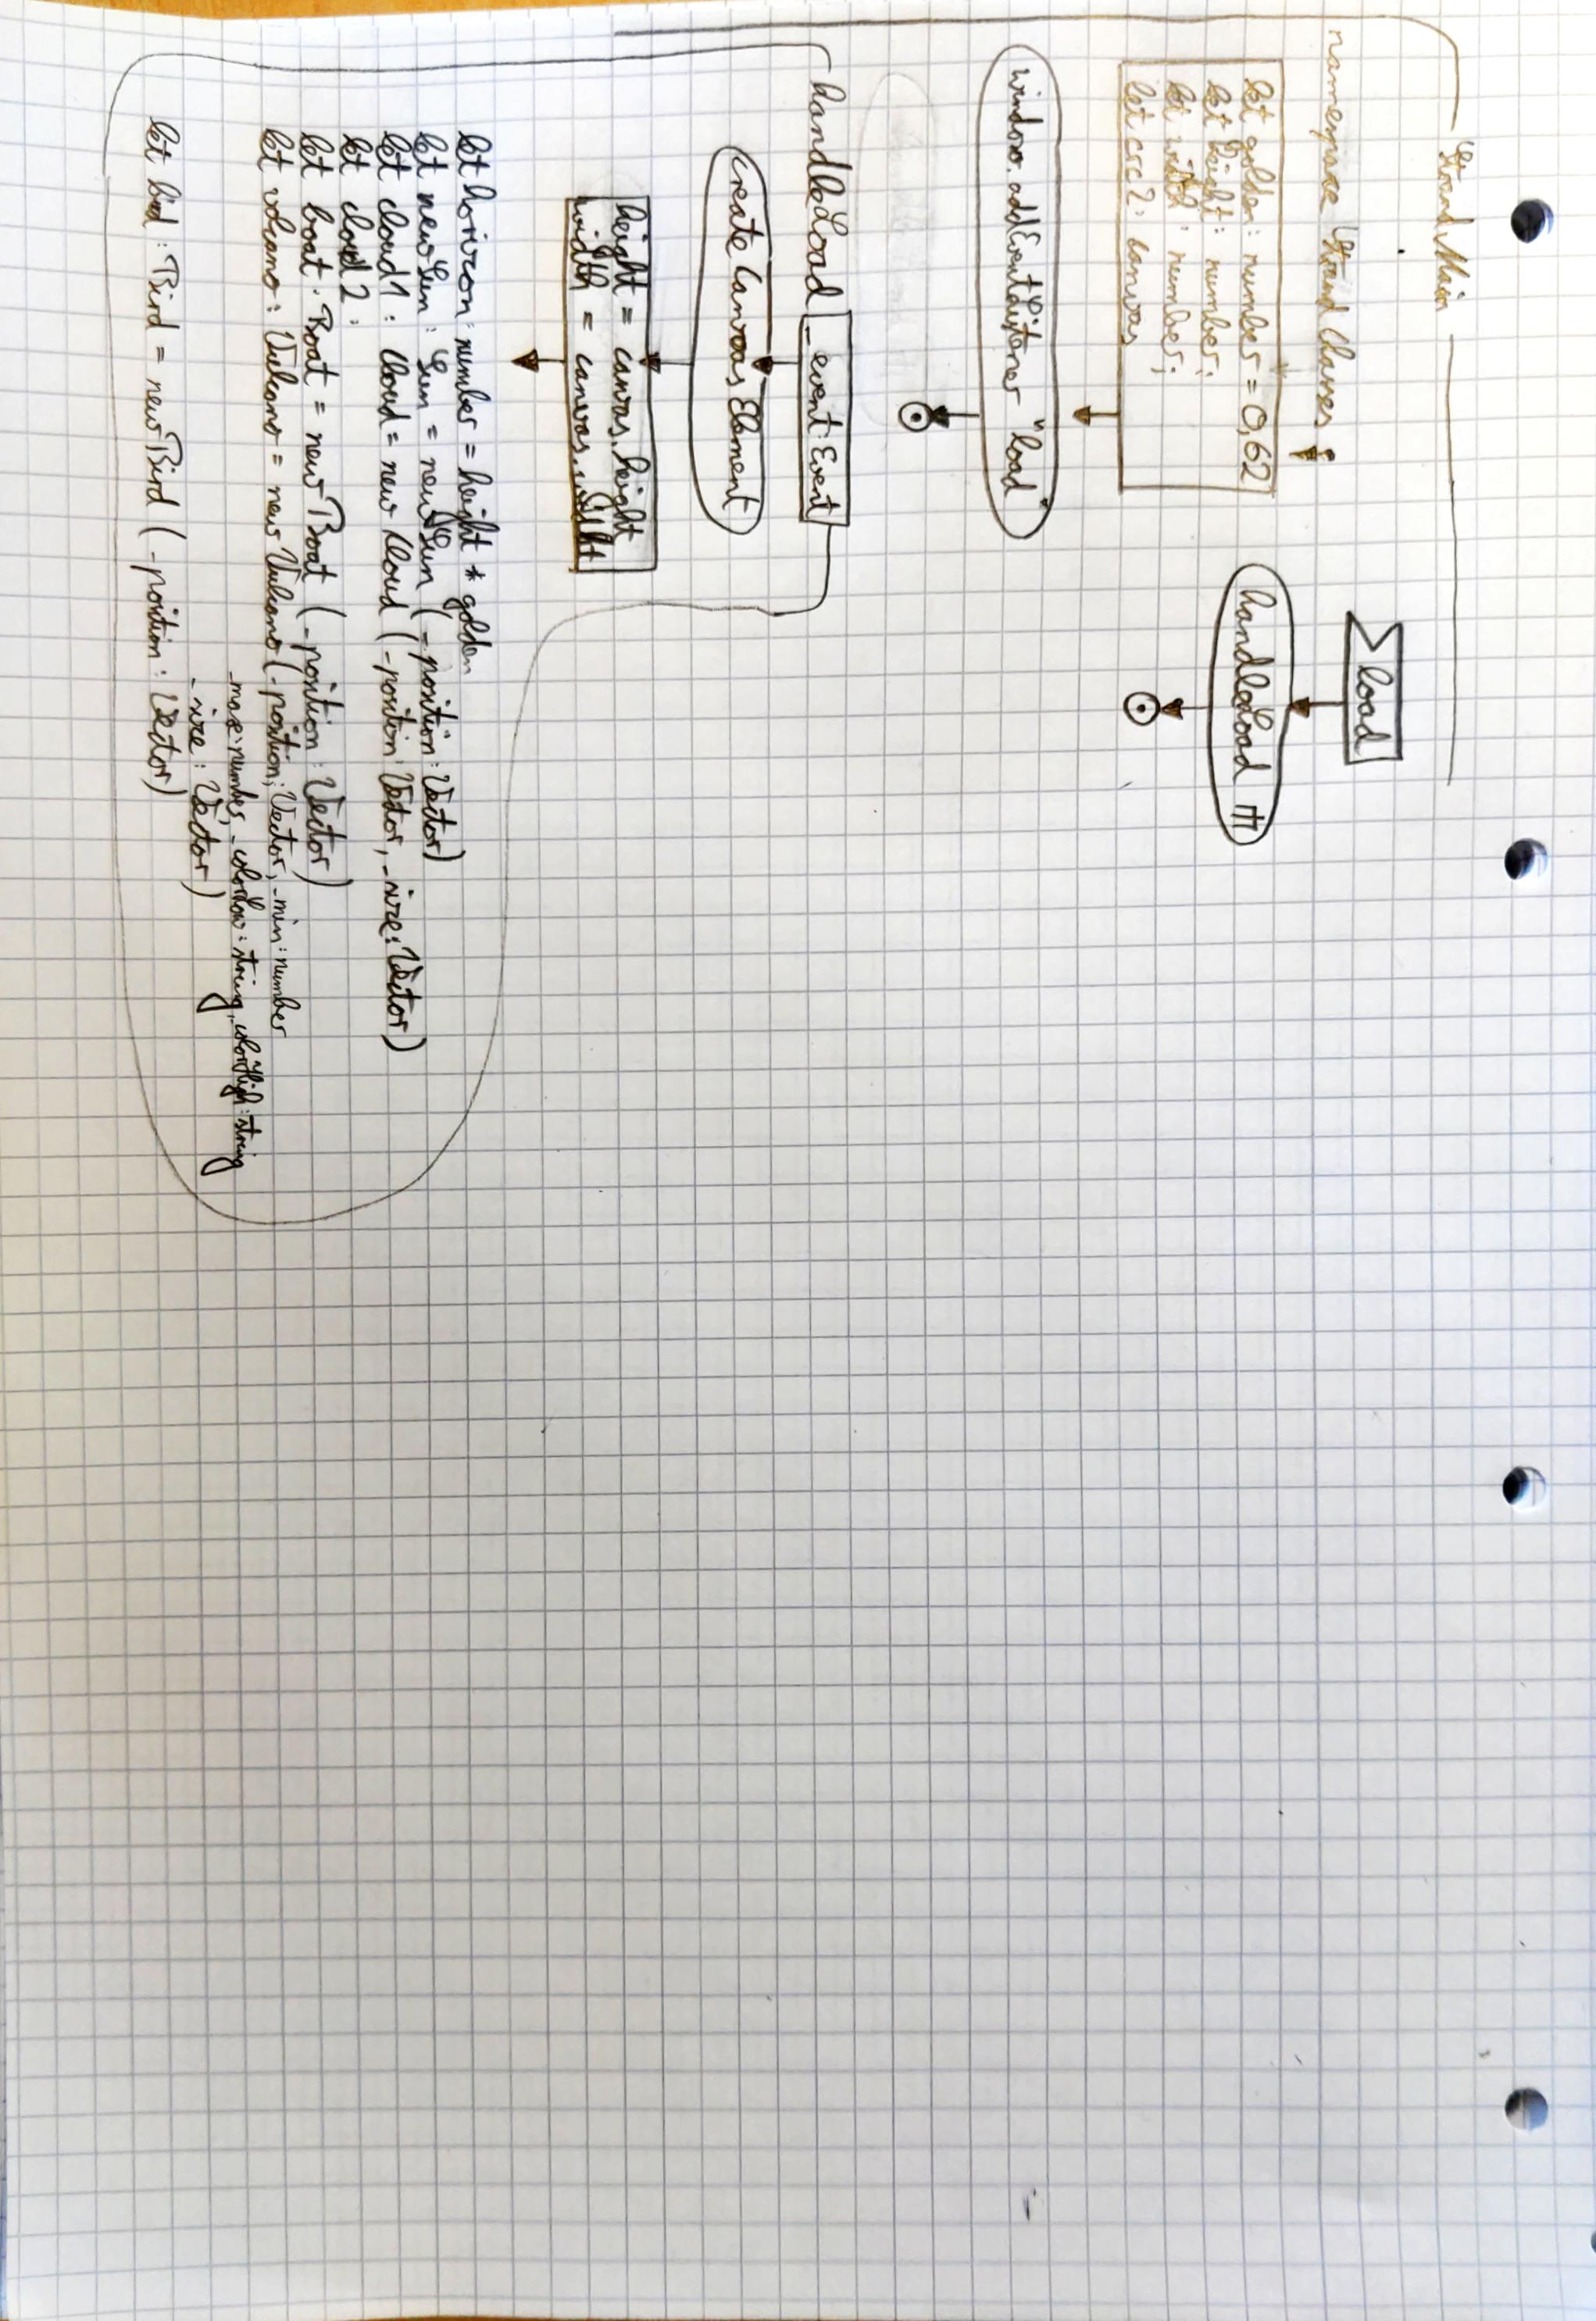 Strand Main
namespace Strand Classes
let golden: number = 0,62
let height: number;
let width: number;
let crc2: canvas
window.addEventListener "load"
load
handleLoad
handleLoad
_event: Event
create Canvas Element
height = canvas.height
width = canvas.width
let horizon: number = height * golden
let newSun: Sun = new Sun (_position: Vector)
let cloud1: Cloud = new Cloud (_position: Vector, _size: Vector)
let cloud2:
let boat: Boat = new Boat (_position: Vector)
let volcano: Vulcano = new Vulcano (_position: Vector, _min: number
_max: number, _colorLow: string, _colorHigh: string
_size: Vector)
let bird: Bird = new Bird (_position: Vector)